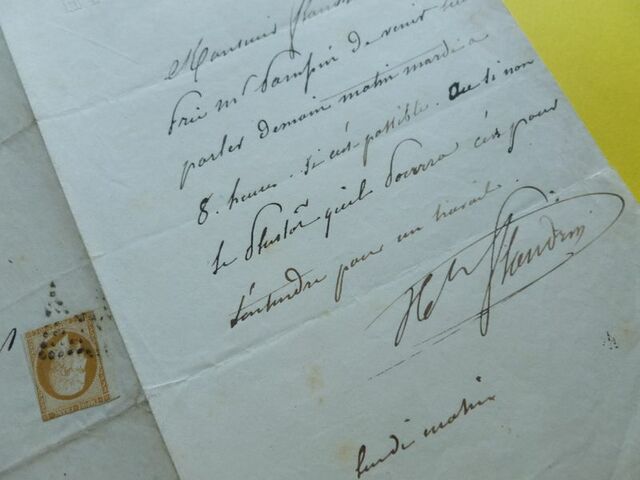 Monsieur Flandrin
Prie Mr Pampin de venir lui
parler demain matin mardi a
8. heures. Si c'est possible. Ou si non
le Plustôt qu'il Pourra c'est pour
s'entendre pour un travail.
Hte Flandrin
lundi matin